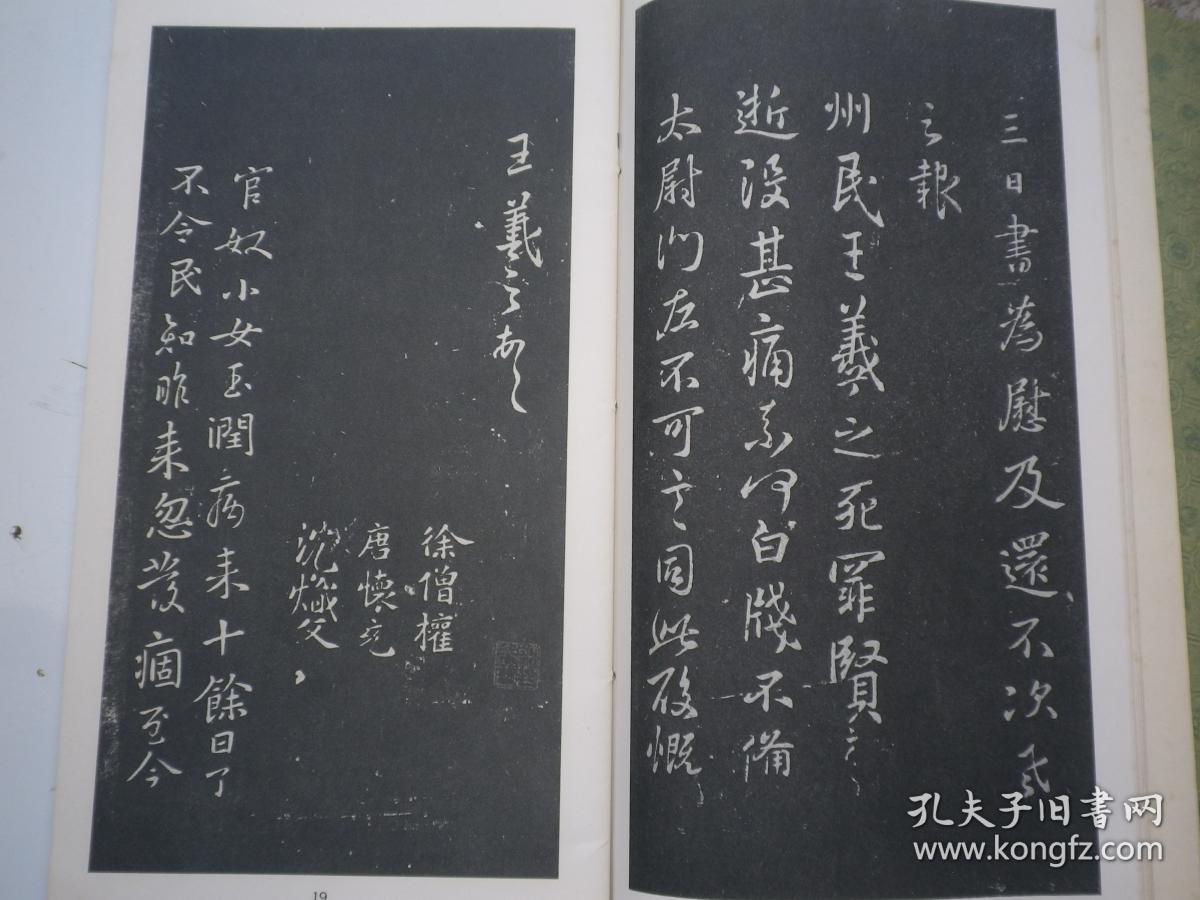 三日書為慰及還不次羲
之報
州民王羲之死罪賢
逝沒甚痛奈何白牋不備
太尉門左不可言同此酸慨
王羲之頓首
徐僧權
唐懷充
沈熾文
官奴小女玉潤病来十餘日了
不令民知昨来忽發痼至今
19
孔夫子旧书网
www.kongfz.com